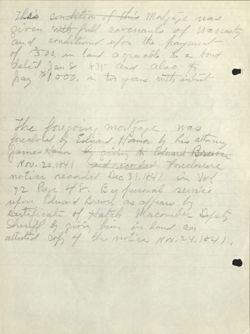 This condition of this Mortgage was
given with full covenants of Warranty
and conditioned upon the payment
of $500 in land agreeable to a bond
dated Jan 8 and also to
pay $1,000. in years with interest.
The foregoing mortgage, was
foreclosed by Edward Hanson by his attorney
James
Nov. 20, 1841 foreclosure
notice recorded Dec 31, 1841 in Vol
92 Page 48. By personal service
upon Edward Brown as appears by
Certificate of Hatch Macomber Deputy
Sheriff by giving him in hand an
attested copy of the notice Nov. 24, 1841.